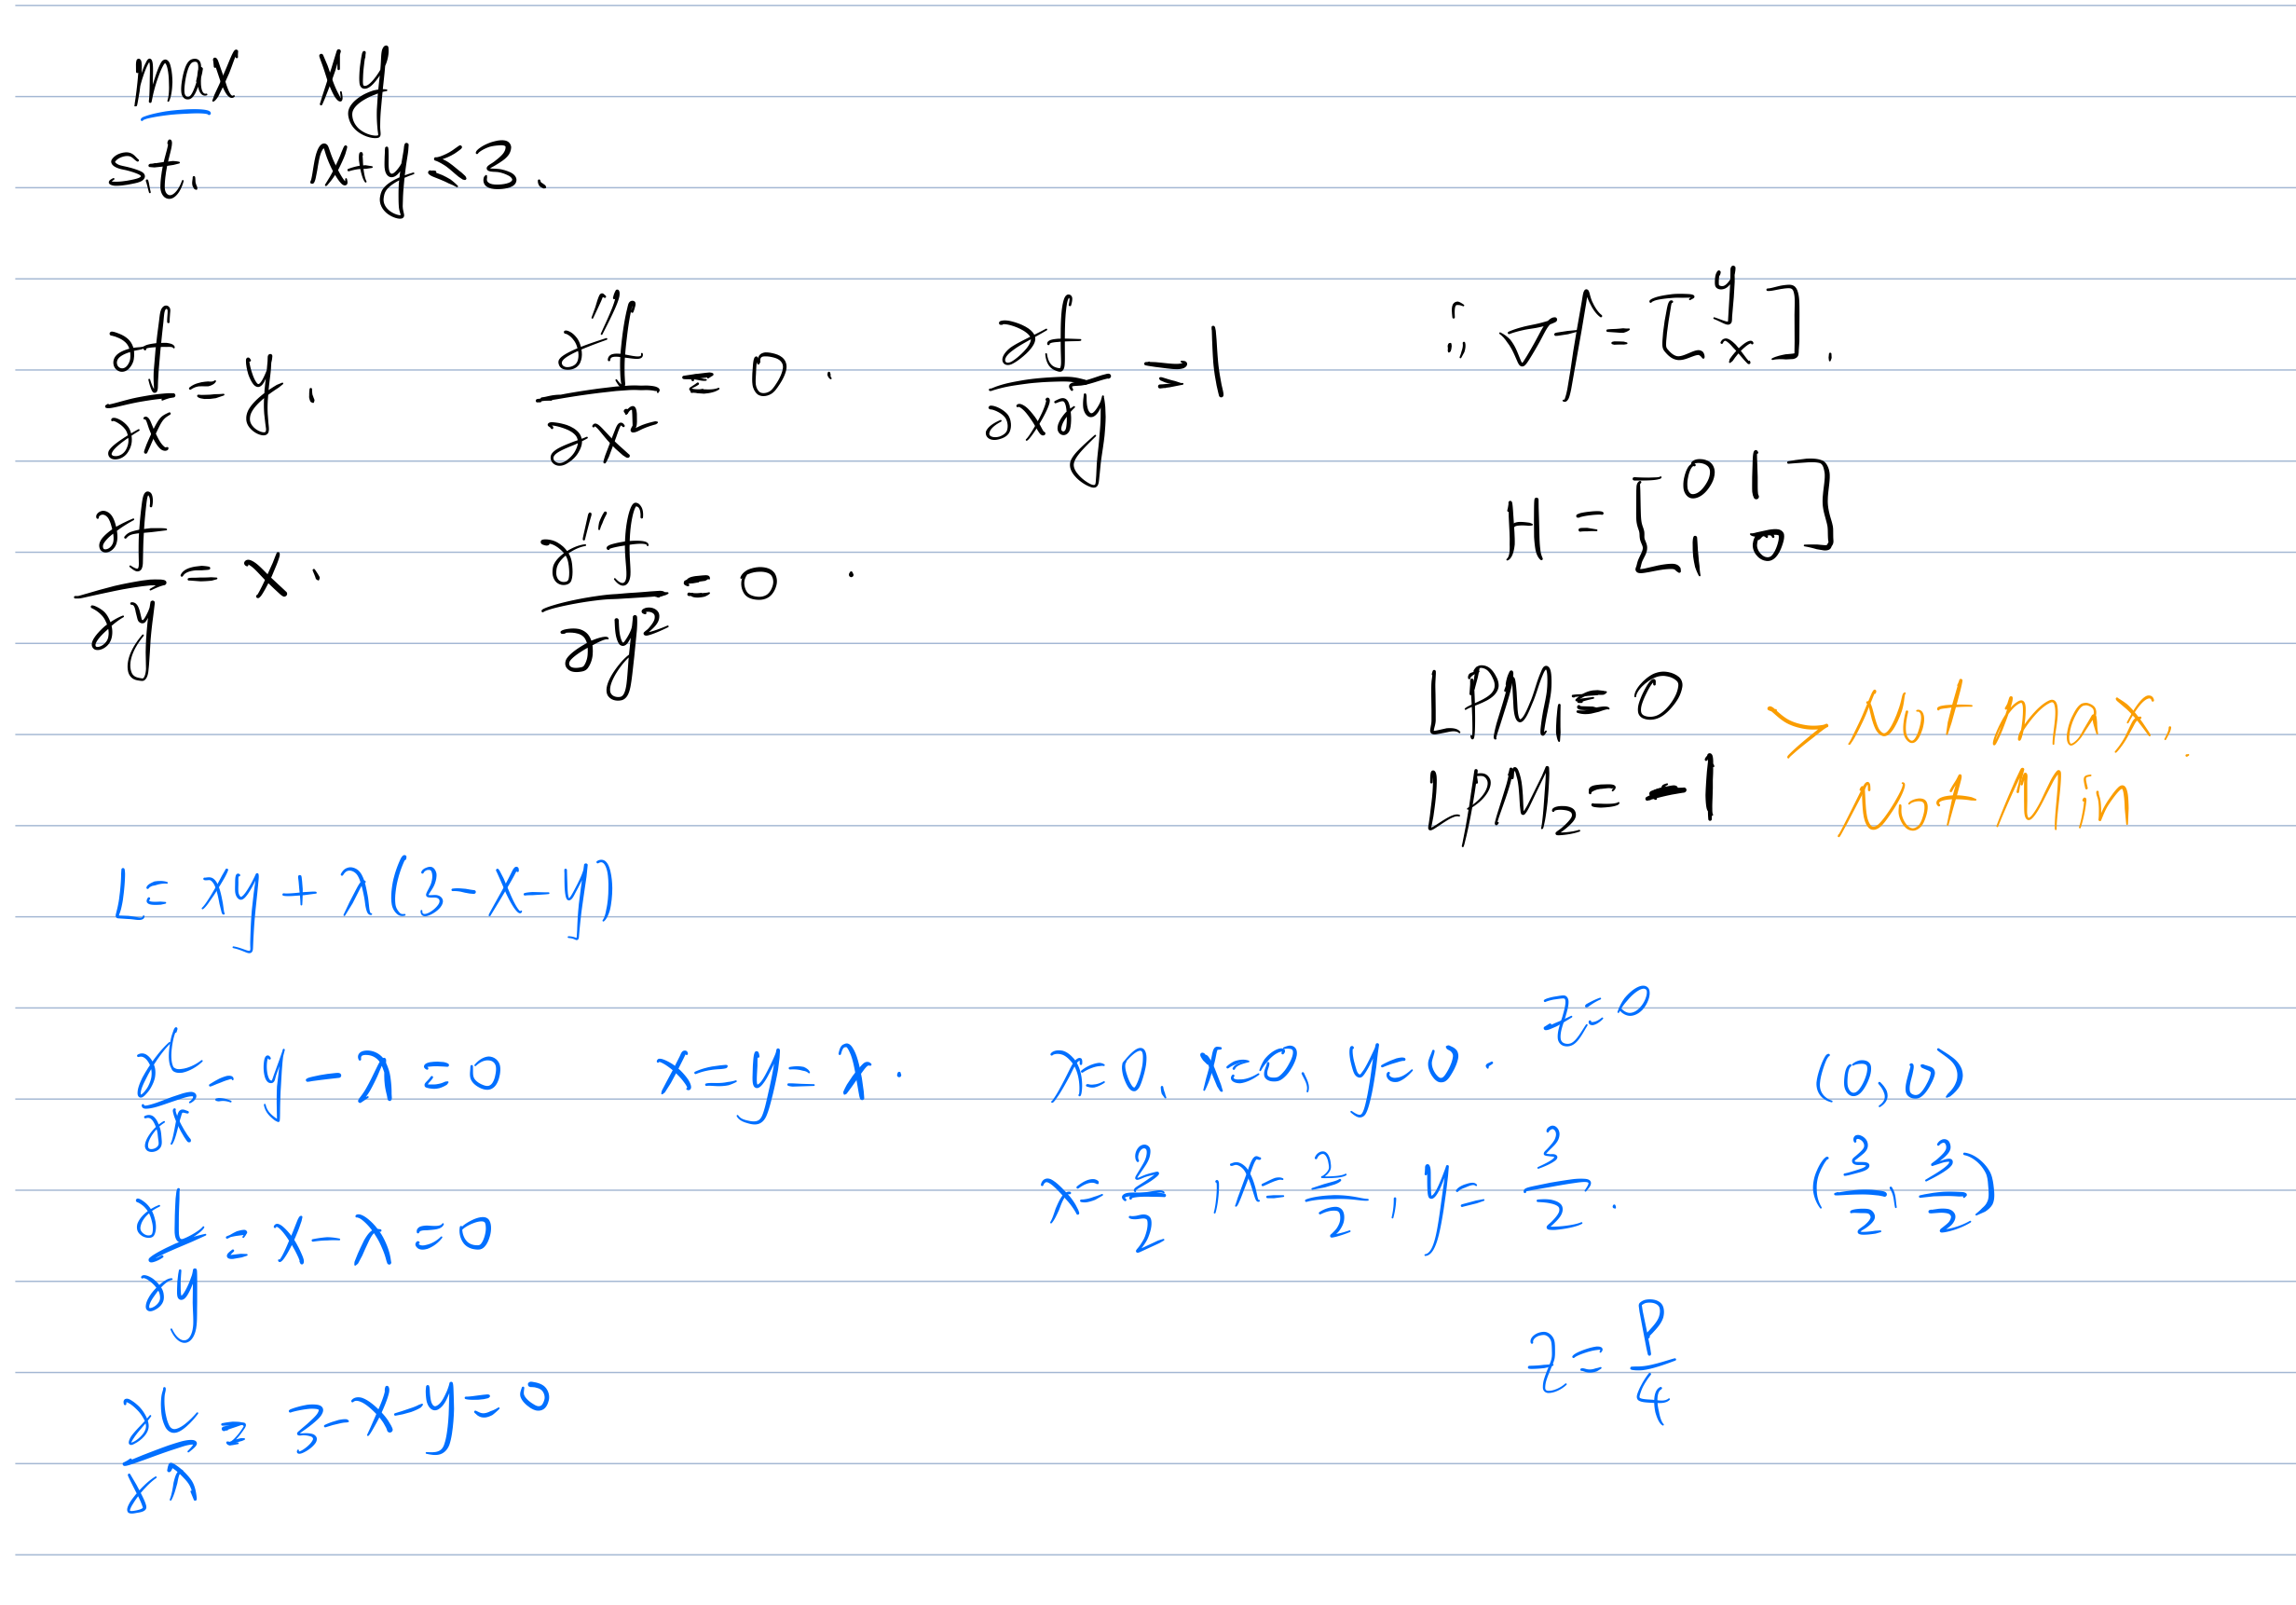 max xy
s.t. x+y≤3.
∂f/∂x = y. ∂''f/∂x² = 0. ∂f/∂x∂y = 1 ; ∇f = [y x].
∂f/∂y = x. ∂''f/∂y² = 0. H = [0 1 1 0]
LPM₁ = 0 → Not max,
LPM₂ = -1 Not Min
L = xy + λ(3-x-y)
z=0
∂L/∂x = y - λ = 0 x=y=λ. λ=0, x=0, y=0. (0,0)
∂L/∂y = x-λ = 0 λ=3/2, x=3/2, y=3/2. (3/2, 3/2)
z = 9/4
∂L/∂λ = 3-x-y=0